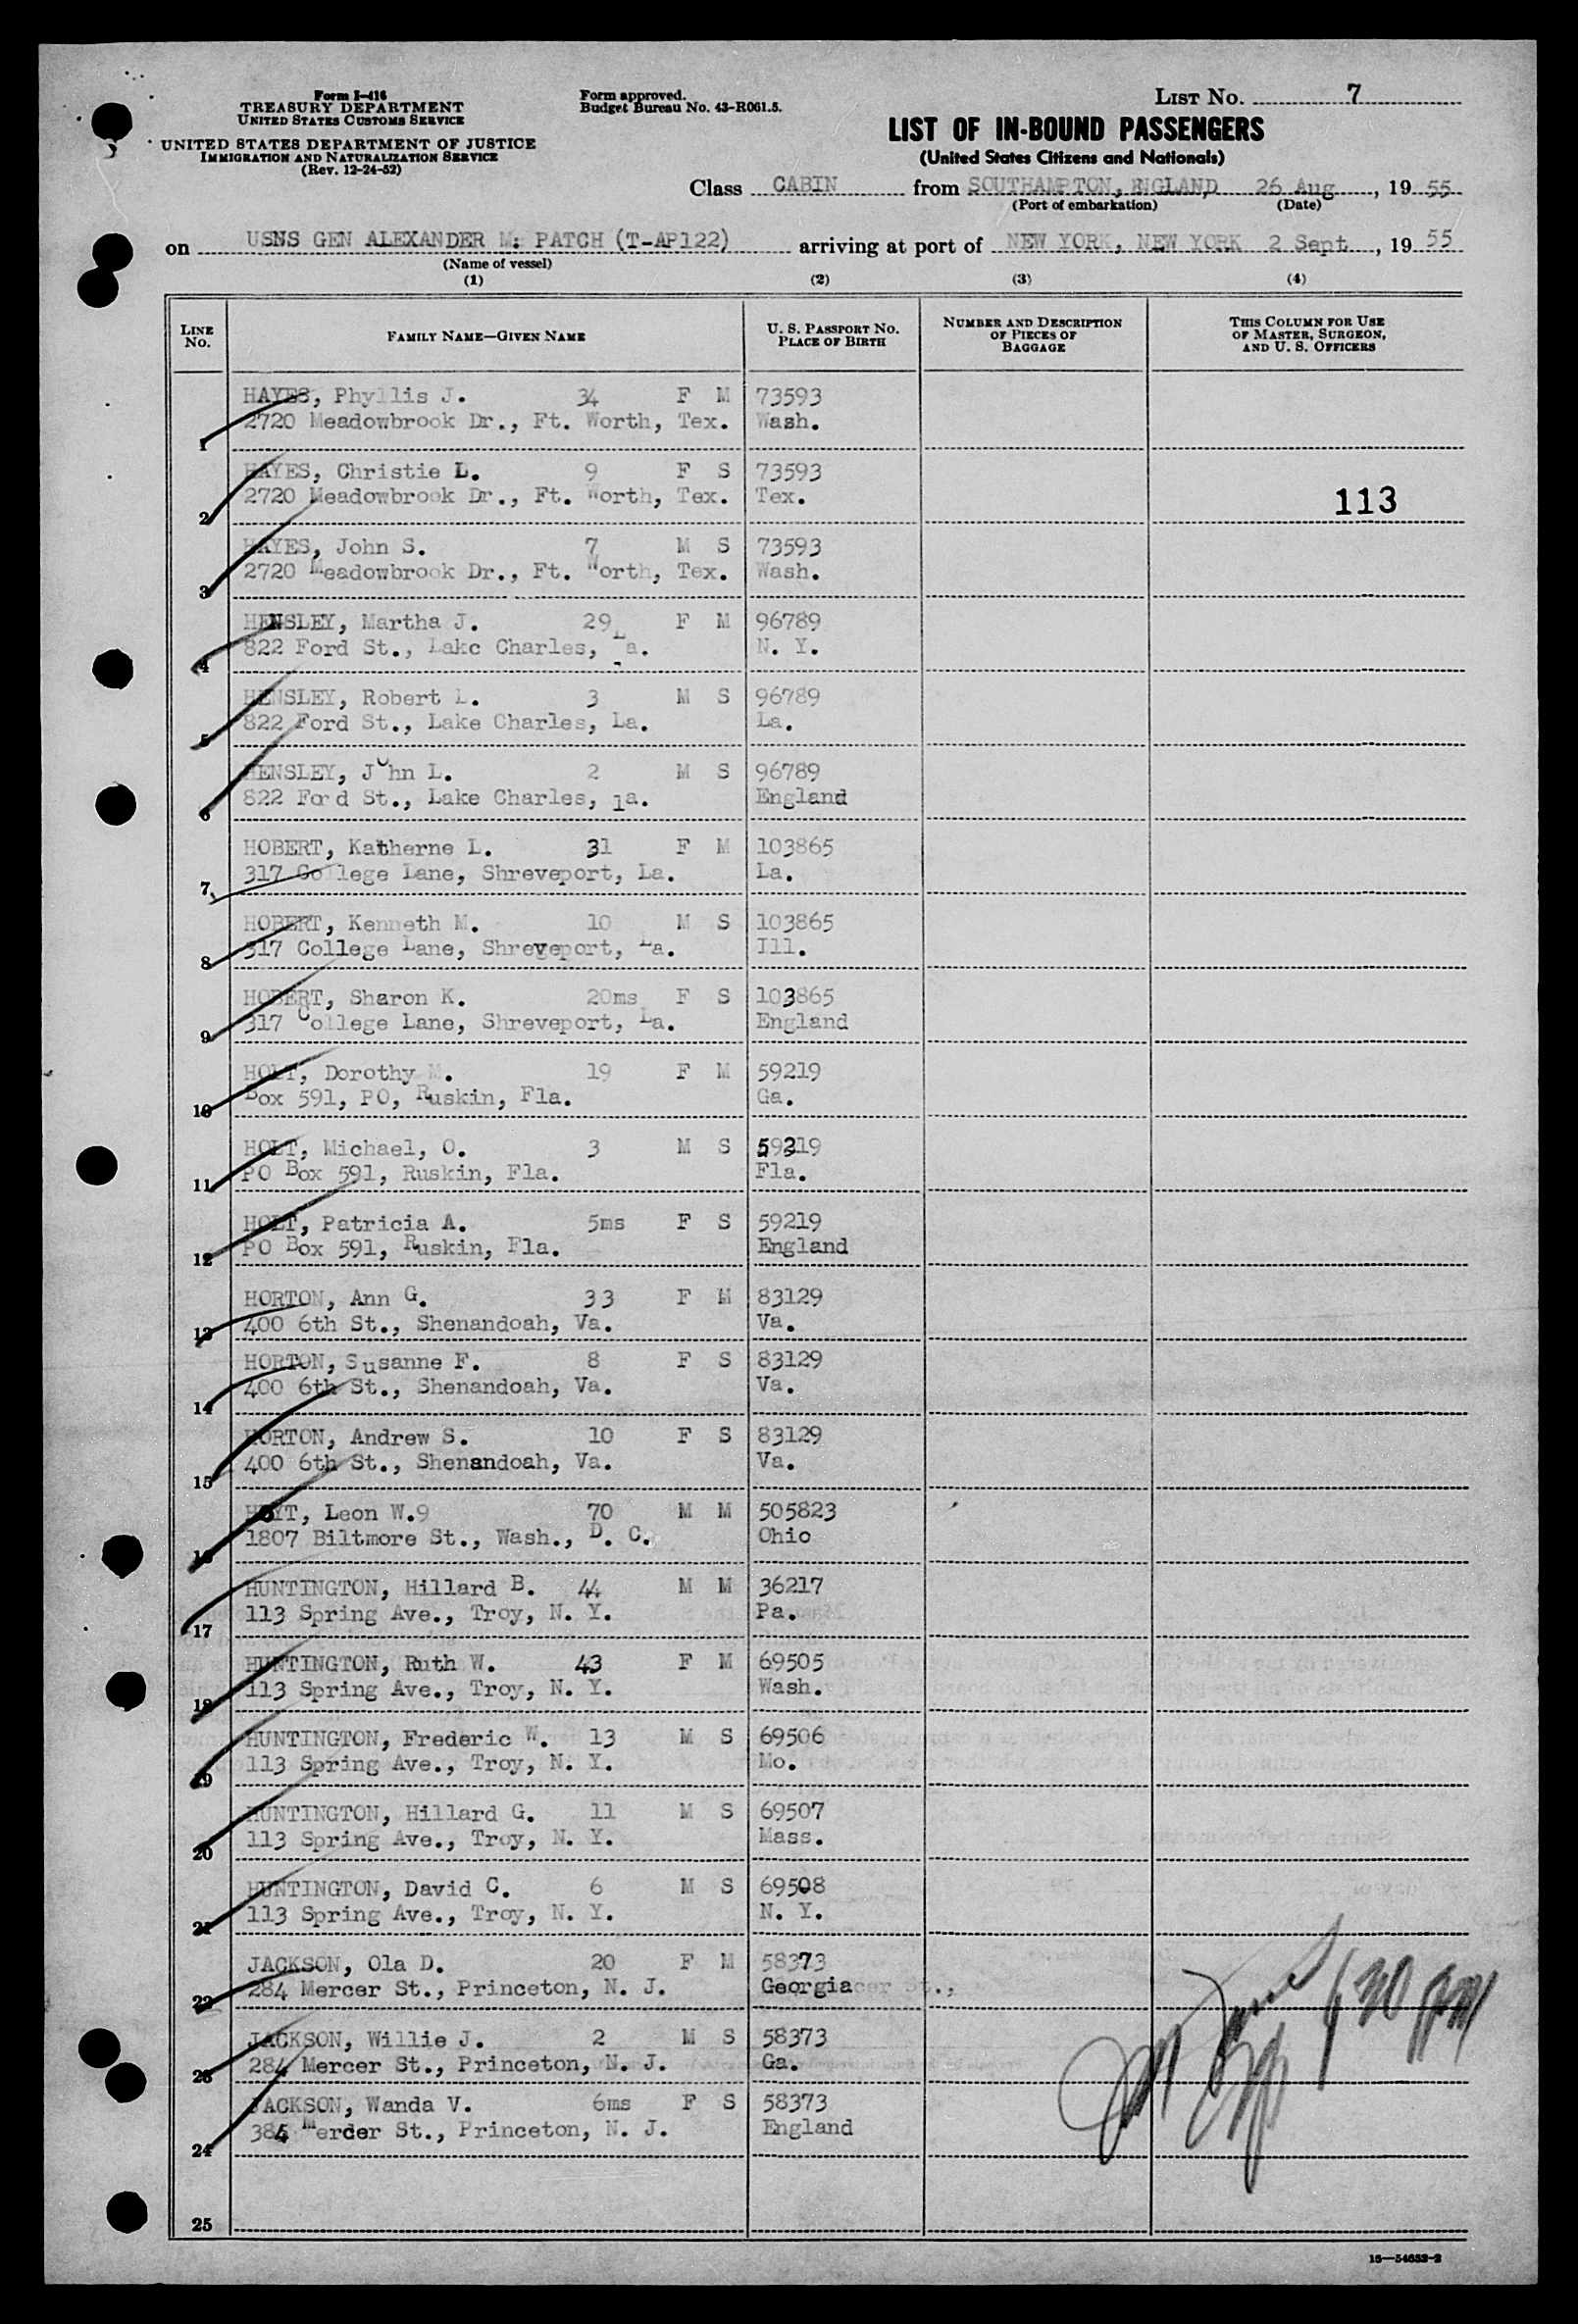 Form I-416
TREASURY DEPARTMENT
UNITED STATES CUSTOMS SERVICE
UNITED STATES DEPARTMENT OF JUSTICE
IMMIGRATION AND NATURALIZATION SERVICE
(Rev. 12-24-52)
Form approved.
Budget Bureau No. 43-R061.5.
LIST NO. 7
LIST OF IN-BOUND PASSENGERS
(United States Citizens and Nationals)
Class CABIN from SOUTHAMPTON, ENGLAND 26 Aug, 19 55
(Port of embarkation) (Date)
on USNS GEN ALEXANDER M. PATCH (T-AP122) arriving at port of NEW YORK, NEW YORK 2 Sept, 19 55
(Name of vessel)
(1) (2) (3) (4)
LINE NO. FAMILY NAME—GIVEN NAME U. S. PASSPORT NO. PLACE OF BIRTH NUMBER AND DESCRIPTION OF PIECES OF BAGGAGE THIS COLUMN FOR USE OF MASTER, SURGEON, AND U. S. OFFICERS
HAYES, Phyllis J. 34 F M 73593
1 2720 Meadowbrook Dr., Ft. Worth, Tex. Wash.
HAYES, Christie L. 9 F S 73593
2 2720 Meadowbrook Dr., Ft. Worth, Tex. Tex. 113
HAYES, John S. 7 M S 73593
3 2720 Meadowbrook Dr., Ft. Worth, Tex. Wash.
HENSLEY, Martha J. 29 F M 96789
4 822 Ford St., Lake Charles, La. N. Y.
HENSLEY, Robert L. 3 M S 96789
5 822 Ford St., Lake Charles, La. La.
HENSLEY, John L. 2 M S 96789
6 822 Ford St., Lake Charles, la. England
HOBERT, Katherne L. 31 F M 103865
7 317 College Lane, Shreveport, La. La.
HOBERT, Kenneth M. 10 M S 103865
8 317 College Lane, Shreveport, La. Ill.
HOBERT, Sharon K. 20ms F S 103865
9 317 College Lane, Shreveport, La. England
HOLT, Dorothy M. 19 F M 59219
10 Box 591, PO, Ruskin, Fla. Ga.
HOLT, Michael, O. 3 M S 59219
11 PO Box 591, Ruskin, Fla. Fla.
HOLT, Patricia A. 5ms F S 59219
12 PO Box 591, Ruskin, Fla. England
HORTON, Ann G. 33 F M 83129
13 400 6th St., Shenandoah, Va. Va.
HORTON, Susanne F. 8 F S 83129
14 400 6th St., Shenandoah, Va. Va.
HORTON, Andrew S. 10 F S 83129
15 400 6th St., Shenandoah, Va. Va.
HOYT, Leon W.9 70 M M 505823
16 1807 Biltmore St., Wash., D. C. Ohio
HUNTINGTON, Hillard B. 44 M M 36217
17 113 Spring Ave., Troy, N. Y. Pa.
HUNTINGTON, Ruth W. 43 F M 69505
18 113 Spring Ave., Troy, N. Y. Wash.
HUNTINGTON, Frederic W. 13 M S 69506
19 113 Spring Ave., Troy, N. Y. Mo.
HUNTINGTON, Hillard G. 11 M S 69507
20 113 Spring Ave., Troy, N. Y. Mass.
HUNTINGTON, David C. 6 M S 69508
21 113 Spring Ave., Troy, N. Y. N. Y.
JACKSON, Ola D. 20 F M 58373
22 284 Mercer St., Princeton, N. J. Georgia
JACKSON, Willie J. 2 M S 58373
23 284 Mercer St., Princeton, N. J. Ga.
JACKSON, Wanda V. 6ms F S 58373
24 384 Merder St., Princeton, N. J. England
25
16—54652-2